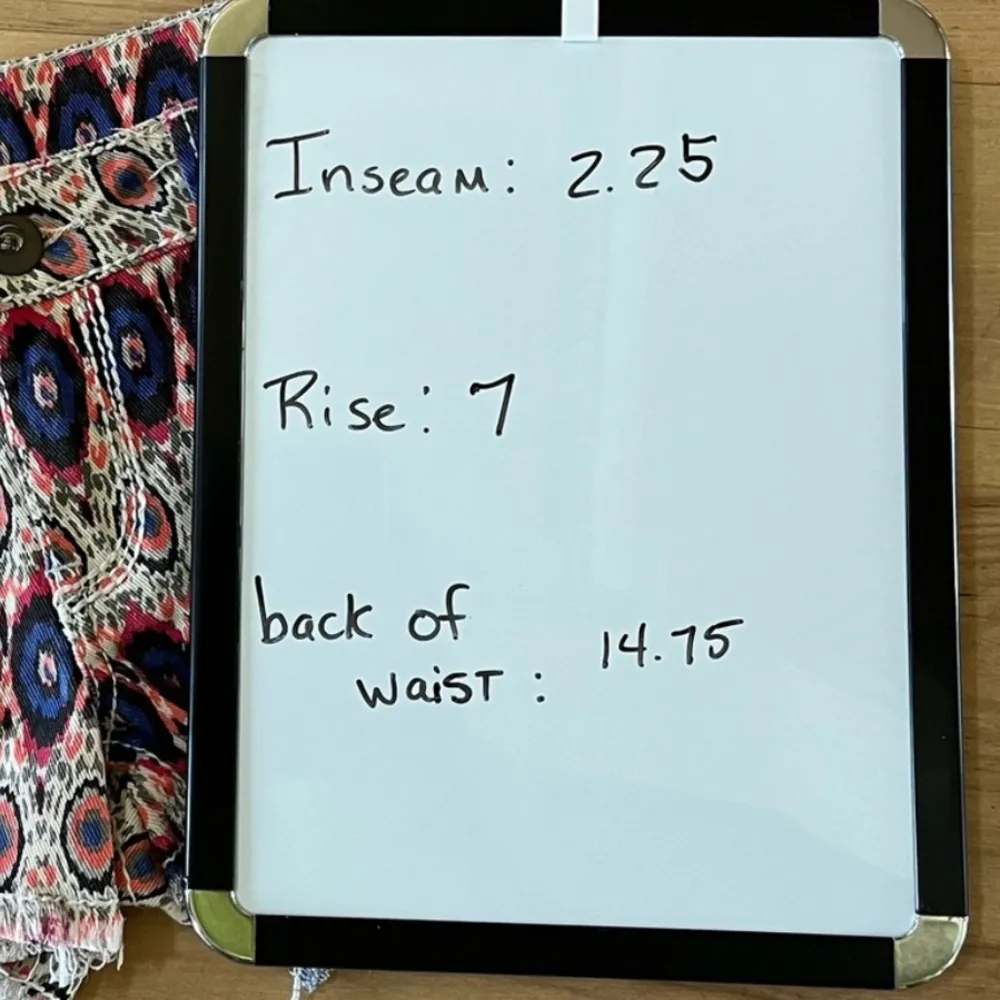 Inseam: 2.25
Rise: 7
back of
waist: 14.75